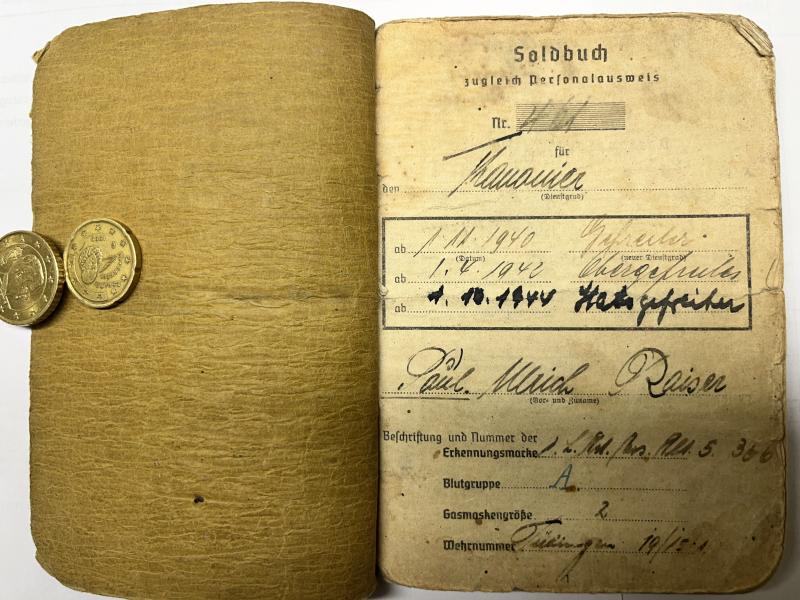 Soldbuch
zugleich Personalausweis
Nr. 461
für
den Kanonier
(Dienstgrad)
ab 1.11.1940 Gefreiter
(Datum) (neuer Dienstgrad)
ab 1.4.1942 Obergefreiter
ab 1.10.1944 Stabsgefreiter
Paul Ulrich Raiser
(Vor- und Zuname)
Beschriftung und Nummer der
Erkennungsmarke 5. 366
Blutgruppe A
Gasmaskengröße 2
Wehrnummer Tübingen